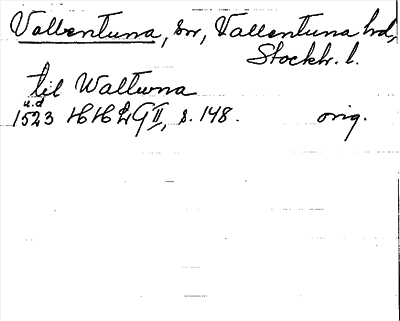 Vallentuna, sn, Vallentuna hd,
Stockh. l.
til Waltwna
u.d
1523 HH LG II, s. 148. orig.